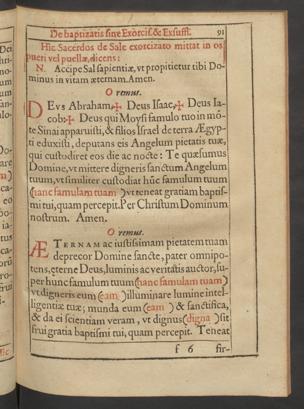 De baptizatis sine Exorcis. & Exsuffl. 91
Hic Sacerdos de Sale exorcizato mittat in os
pueri vel puellæ, dicens:
N. Accipe Sal sapientiæ, vt propitietur tibi Do-
minus in vitam æternam. Amen.
Oremus.
DEVS Abraham, ✠ Deus Isaac, ✠ Deus Ia-
cob: ✠ Deus qui Moysi famulo tuo in mõ-
te Sinai apparuisti, & filios Israel de terra Ægyp-
ti eduxisti, deputans eis Angelum pietatis tuæ,
qui custodiret eos die ac nocte: Te quæsumus
Domine, vt mittere digneris sanctum Angelum
tuum, vt similiter custodiat hũc famulum tuum
(hanc famulam tuam) vt teneat gratiam baptis-
mi tui, quam percepit. Per Christum Dominum
nostrum. Amen.
Oremus.
ÆTERNAM ac iustissimam pietatem tuam
deprecor Domine sancte, pater omnipo-
tens, eterne Deus, luminis ac veritatis auctor, su-
per hunc famulum tuum (hanc famulam tuam)
vt digneris eum (eam) illuminare lumine intel-
ligentiæ tuæ; munda eum (eam) & sanctifica,
& da ei scientiam veram, vt dignus (digna) sit
frui gratia baptismi tui, quam percepit. Teneat
f 6 fir-